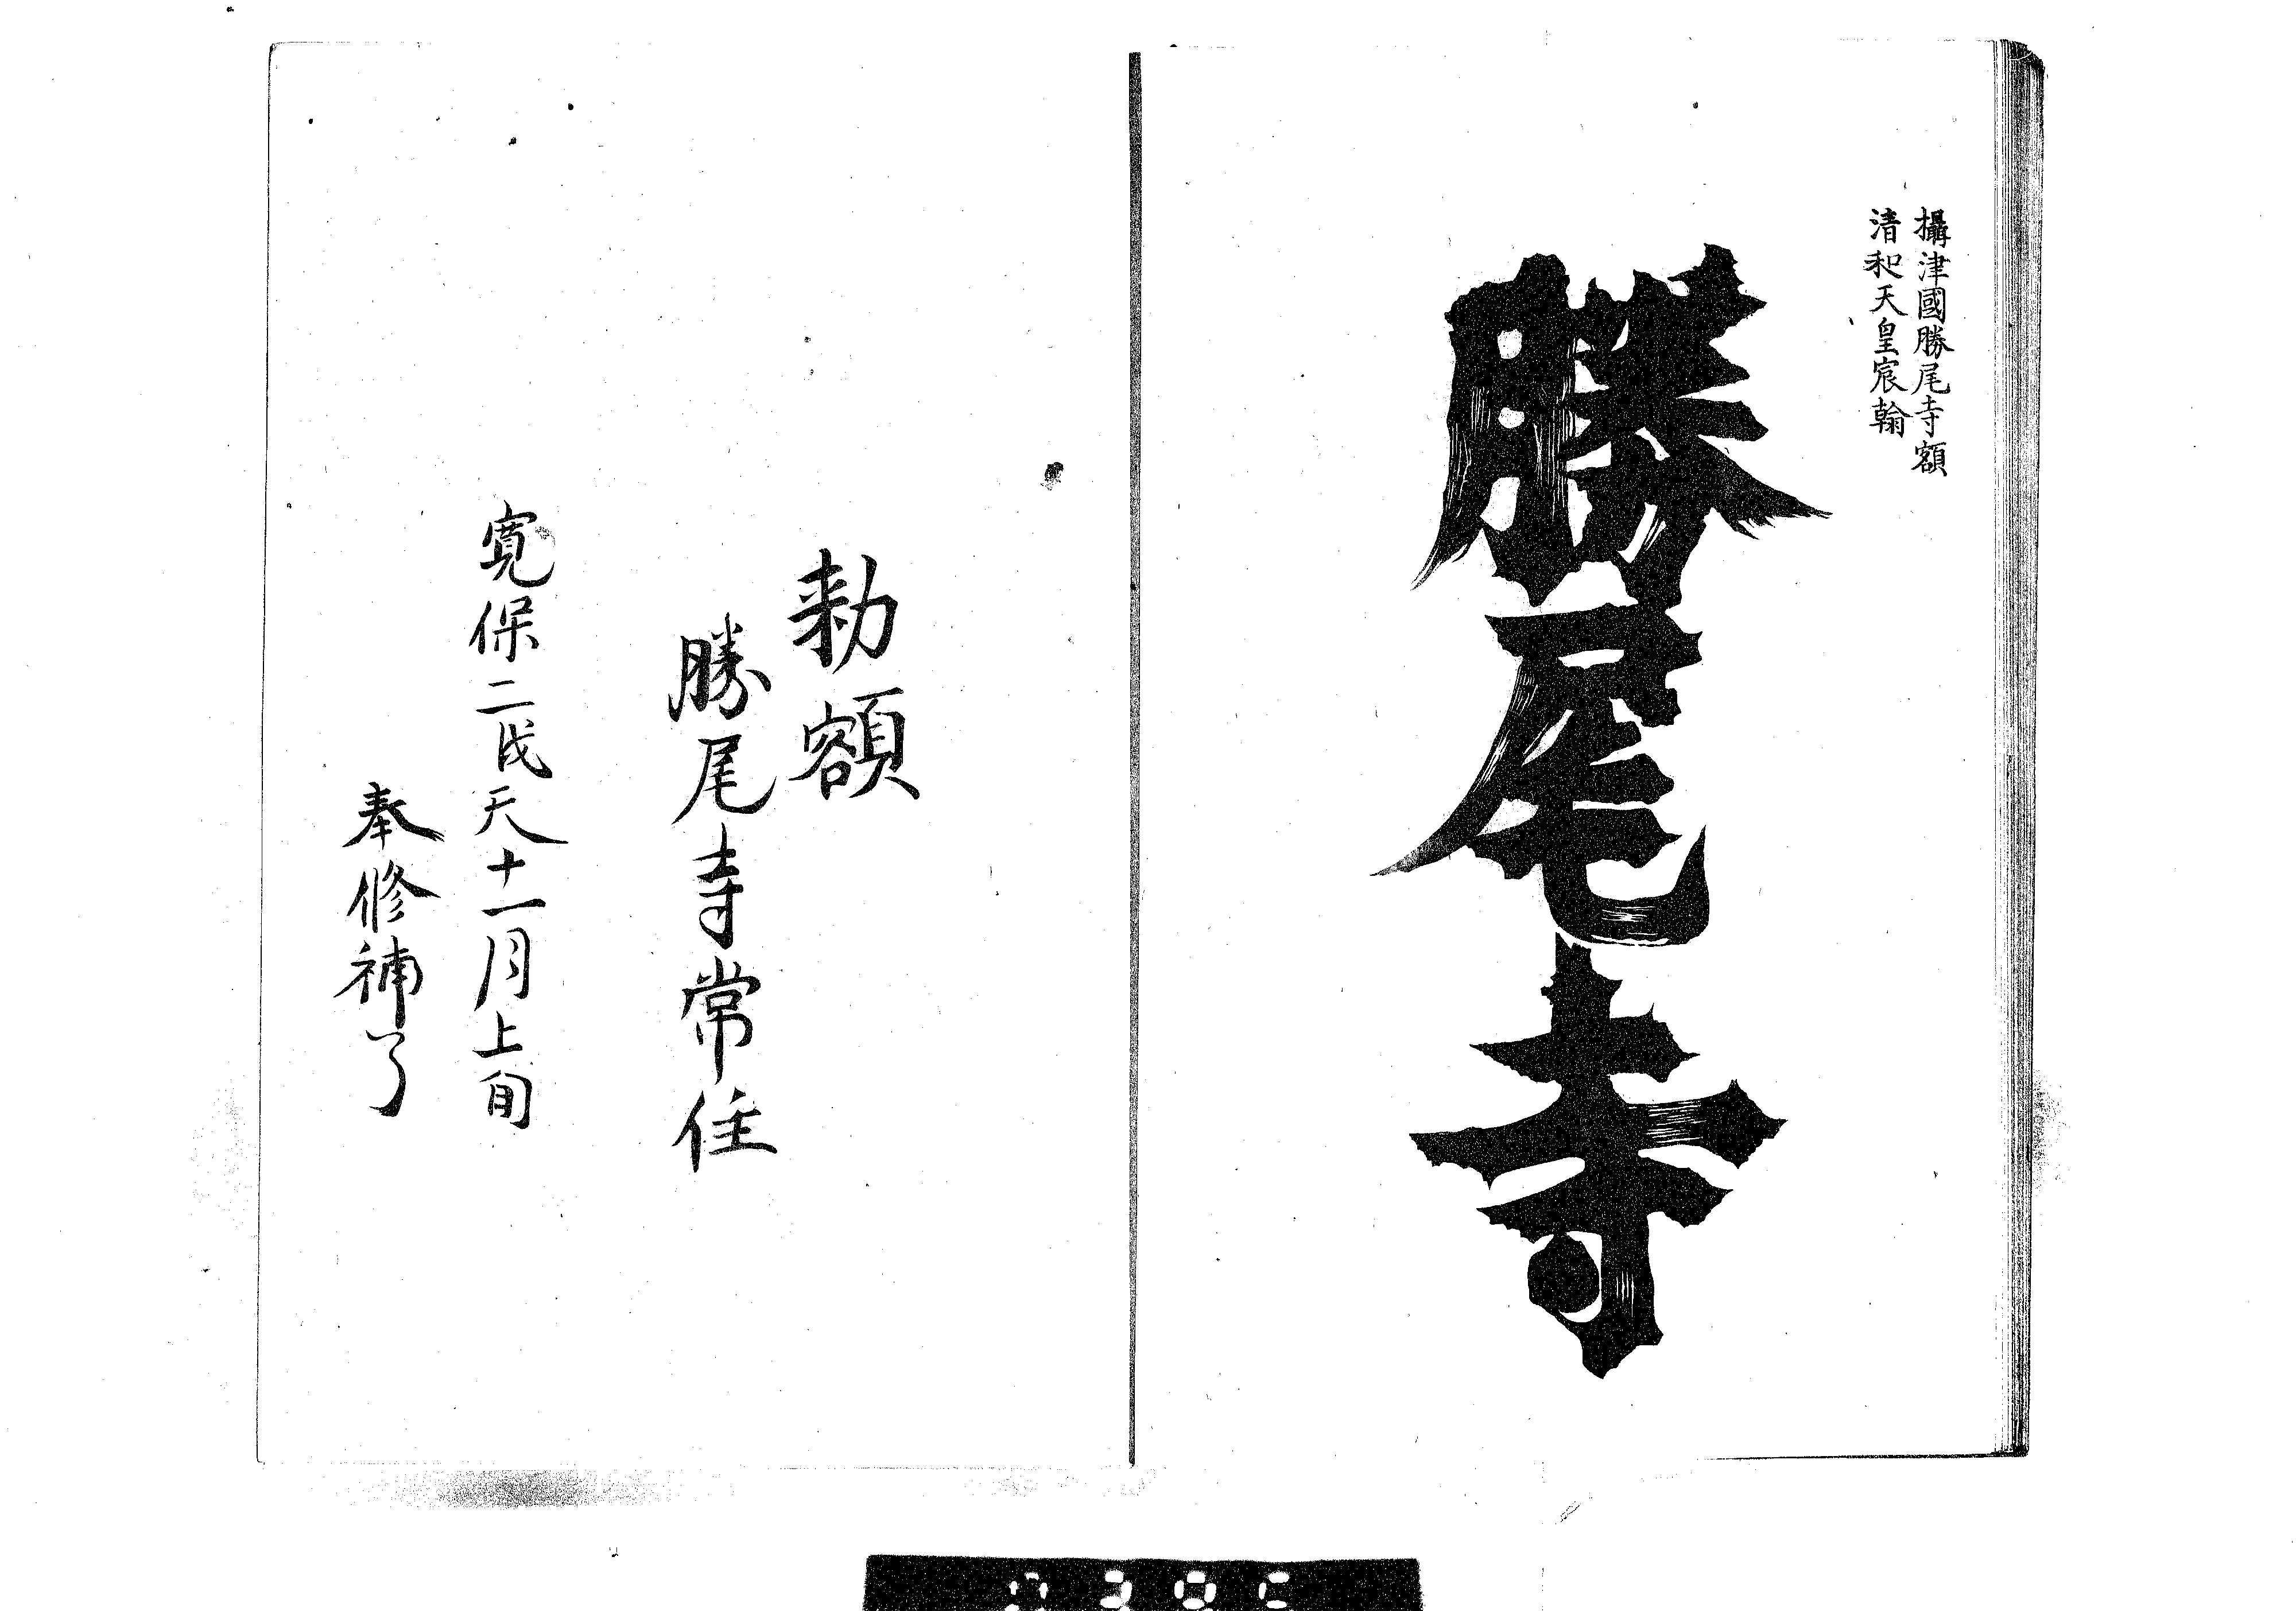 攝津國勝尾寺額
清和天皇宸翰
勝尾寺
勅額
勝尾寺常住
寛保二戌天十一月上旬
奉修補了